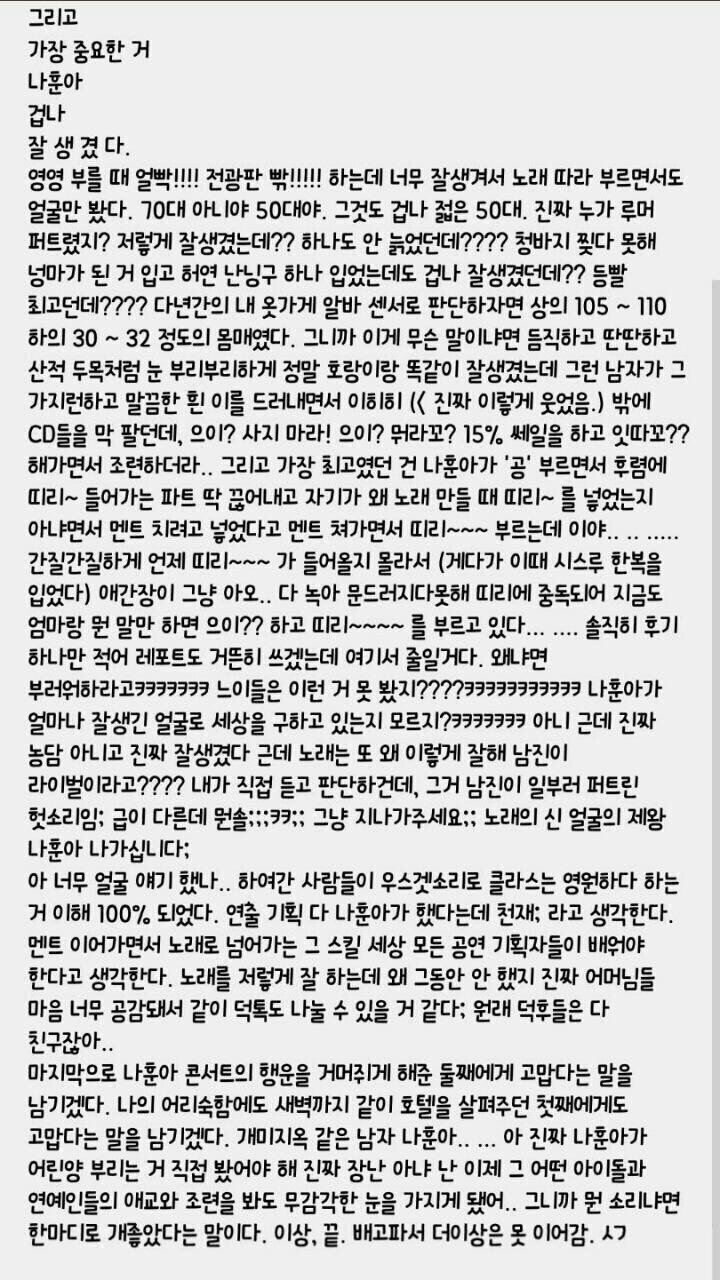 그리고
가장 중요한 거
나훈아
겁나
잘 생 겼 다.
영영 부를 때 얼빡!!!! 전광판 빢!!!!! 하는데 너무 잘생겨서 노래 따라 부르면서도
얼굴만 봤다. 70대 아니야 50대야. 그것도 겁나 젋은 50대. 진짜 누가 루머
퍼트렸지? 저렇게 잘생겼는데?? 하나도 안 늙었던데???? 청바지 찢다 못해
넝마가 된 거 입고 허연 난닝구 하나 입었는데도 겁나 잘생겼던데?? 등빨
최고던데???? 다년간의 내 옷가게 알바 센서로 판단하자면 상의 105 ~ 110
하의 30 ~ 32 정도의 몸매였다. 그니까 이게 무슨 말이냐면 듬직하고 딴딴하고
산적 두목처럼 눈 부리부리하게 정말 호랑이랑 똑같이 잘생겼는데 그런 남자가 그
가지런하고 말끔한 흰 이를 드러내면서 이히히 (< 진짜 이렇게 웃었음.) 밖에
CD들을 막 팔던데, 으이? 사지 마라! 으이? 뭐라꼬? 15% 쎄일을 하고 잇따꼬??
해가면서 조련하더라.. 그리고 가장 최고였던 건 나훈아가 '공' 부르면서 후렴에
띠리~ 들어가는 파트 딱 끊어내고 자기가 왜 노래 만들 때 띠리~ 를 넣었는지
아냐면서 멘트 치려고 넣었다고 멘트 쳐가면서 띠리~~~ 부르는데 이야.. .. .....
간질간질하게 언제 띠리~~~ 가 들어올지 몰라서 (게다가 이때 시스루 한복을
입었다) 애간장이 그냥 아오.. 다 녹아 문드러지다못해 띠리에 중독되어 지금도
엄마랑 뭔 말만 하면 으이?? 하고 띠리~~~~ 를 부르고 있다... .... 솔직히 후기
하나만 적어 레포트도 거뜬히 쓰겠는데 여기서 줄일거다. 왜냐면
부러워하라고ㅋㅋㅋㅋㅋㅋㅋ 느이들은 이런 거 못 봤지????ㅋㅋㅋㅋㅋㅋㅋㅋㅋㅋㅋ 나훈아가
얼마나 잘생긴 얼굴로 세상을 구하고 있는지 모르지?ㅋㅋㅋㅋㅋㅋㅋ 아니 근데 진짜
농담 아니고 진짜 잘생겼다 근데 노래는 또 왜 이렇게 잘해 남진이
라이벌이라고???? 내가 직접 듣고 판단하건데, 그거 남진이 일부러 퍼트린
헛소리임; 급이 다른데 뭔솔;;;ㅋㅋ;; 그냥 지나가주세요;; 노래의 신 얼굴의 제왕
나훈아 나가십니다;
아 너무 얼굴 얘기 했나.. 하여간 사람들이 우스겟소리로 클라스는 영원하다 하는
거 이해 100% 되었다. 연출 기획 다 나훈아가 했다는데 천재; 라고 생각한다.
멘트 이어가면서 노래로 넘어가는 그 스킬 세상 모든 공연 기획자들이 배워야
한다고 생각한다. 노래를 저렇게 잘 하는데 왜 그동안 안 했지 진짜 어머님들
마음 너무 공감돼서 같이 덕톡도 나눌 수 있을 거 같다; 원래 덕후들은 다
친구잖아..
마지막으로 나훈아 콘서트의 행운을 거머쥐게 해준 둘째에게 고맙다는 말을
남기겠다. 나의 어리숙함에도 새벽까지 같이 호텔을 살펴주던 첫째에게도
고맙다는 말을 남기겠다. 개미지옥 같은 남자 나훈아.. ... 아 진짜 나훈아가
어린양 부리는 거 직접 봤어야 해 진짜 장난 아냐 난 이제 그 어떤 아이돌과
연예인들의 애교와 조련을 봐도 무감각한 눈을 가지게 됐어.. 그니까 뭔 소리냐면
한마디로 개좋았다는 말이다. 이상, 끝. 배고파서 더이상은 못 이어감. ㅅㄱ